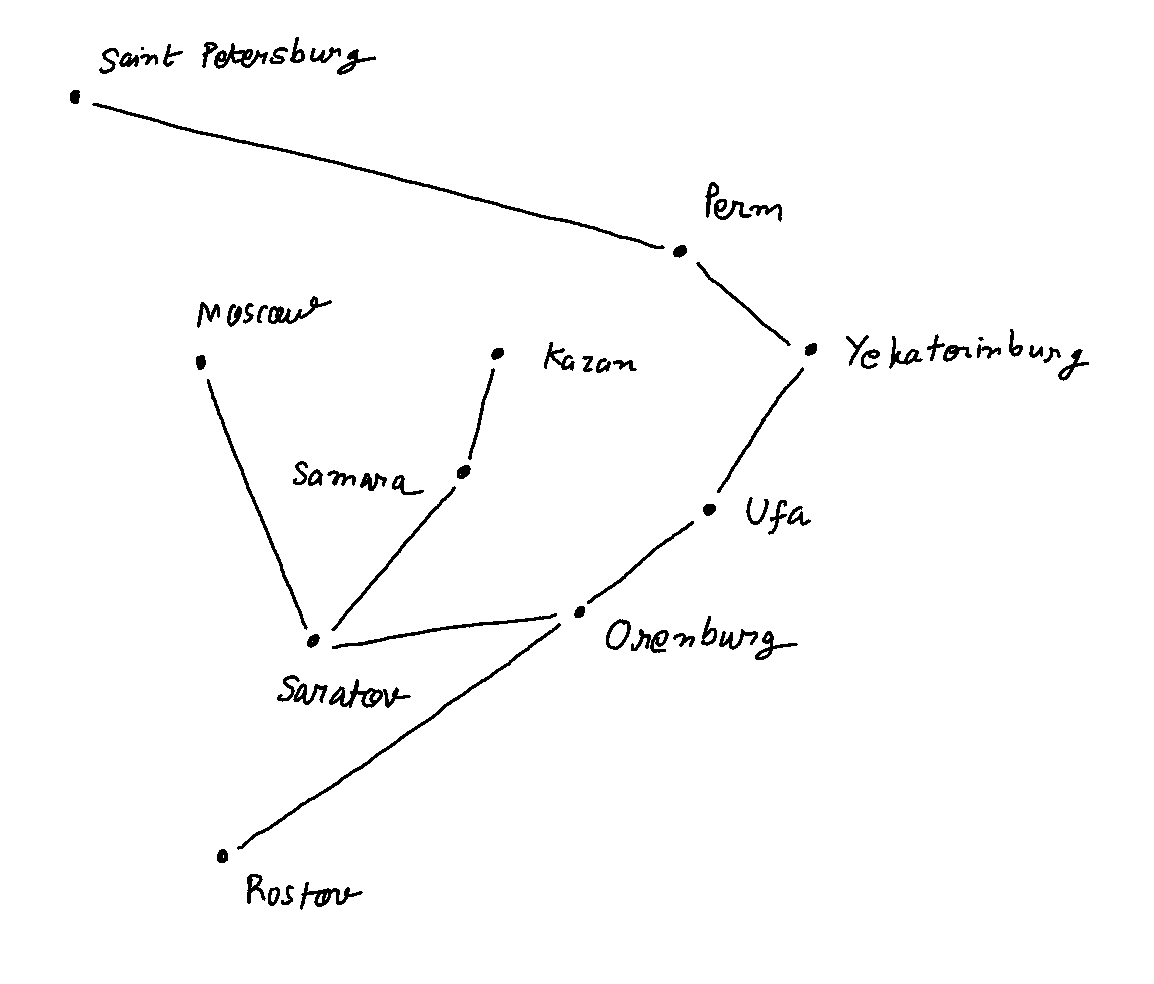 Saint Petersburg
Perm
Moscow
Kazan
Yekatorinburg
Samara
Ufa
Orenburg
Saratov
Rostov